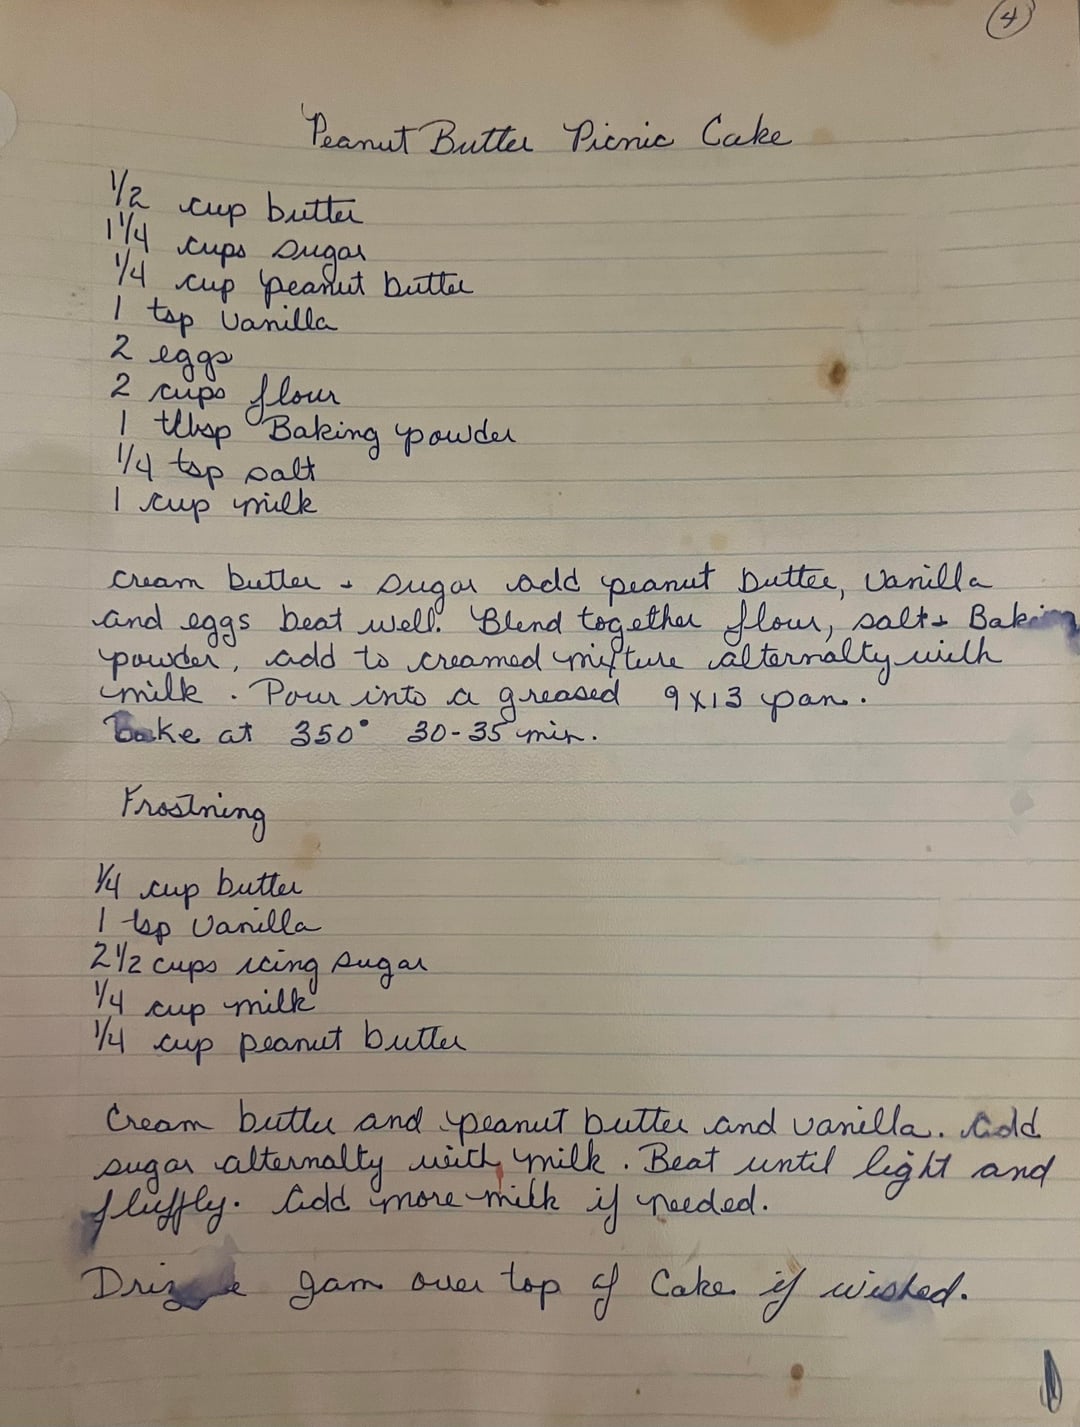 4
Peanut Butter Picnic Cake
1/2 cup butter
1 1/4 cups sugar
1/4 cup peanut butter
1 tsp Vanilla
2 eggs
2 cups flour
1 tlbsp Baking powder
1/4 tsp salt
1 cup milk
cream butter + sugar add peanut butter, Vanilla
and eggs beat well. Blend together flour, salt + Baking
powder, add to creamed mixture alternalty with
milk. Pour into a greased 9x13 pan.
Bake at 350° 30-35 min.
Frostning
1/4 cup butter
1 tsp Vanilla
2 1/2 cups icing sugar
1/4 cup milk
1/4 cup peanut butter
Cream butter and peanut butter and vanilla. Add
sugar alternalty with milk. Beat until light and
fluffly. Add more milk if needed.
Drizzle jam over top of Cake if wished.